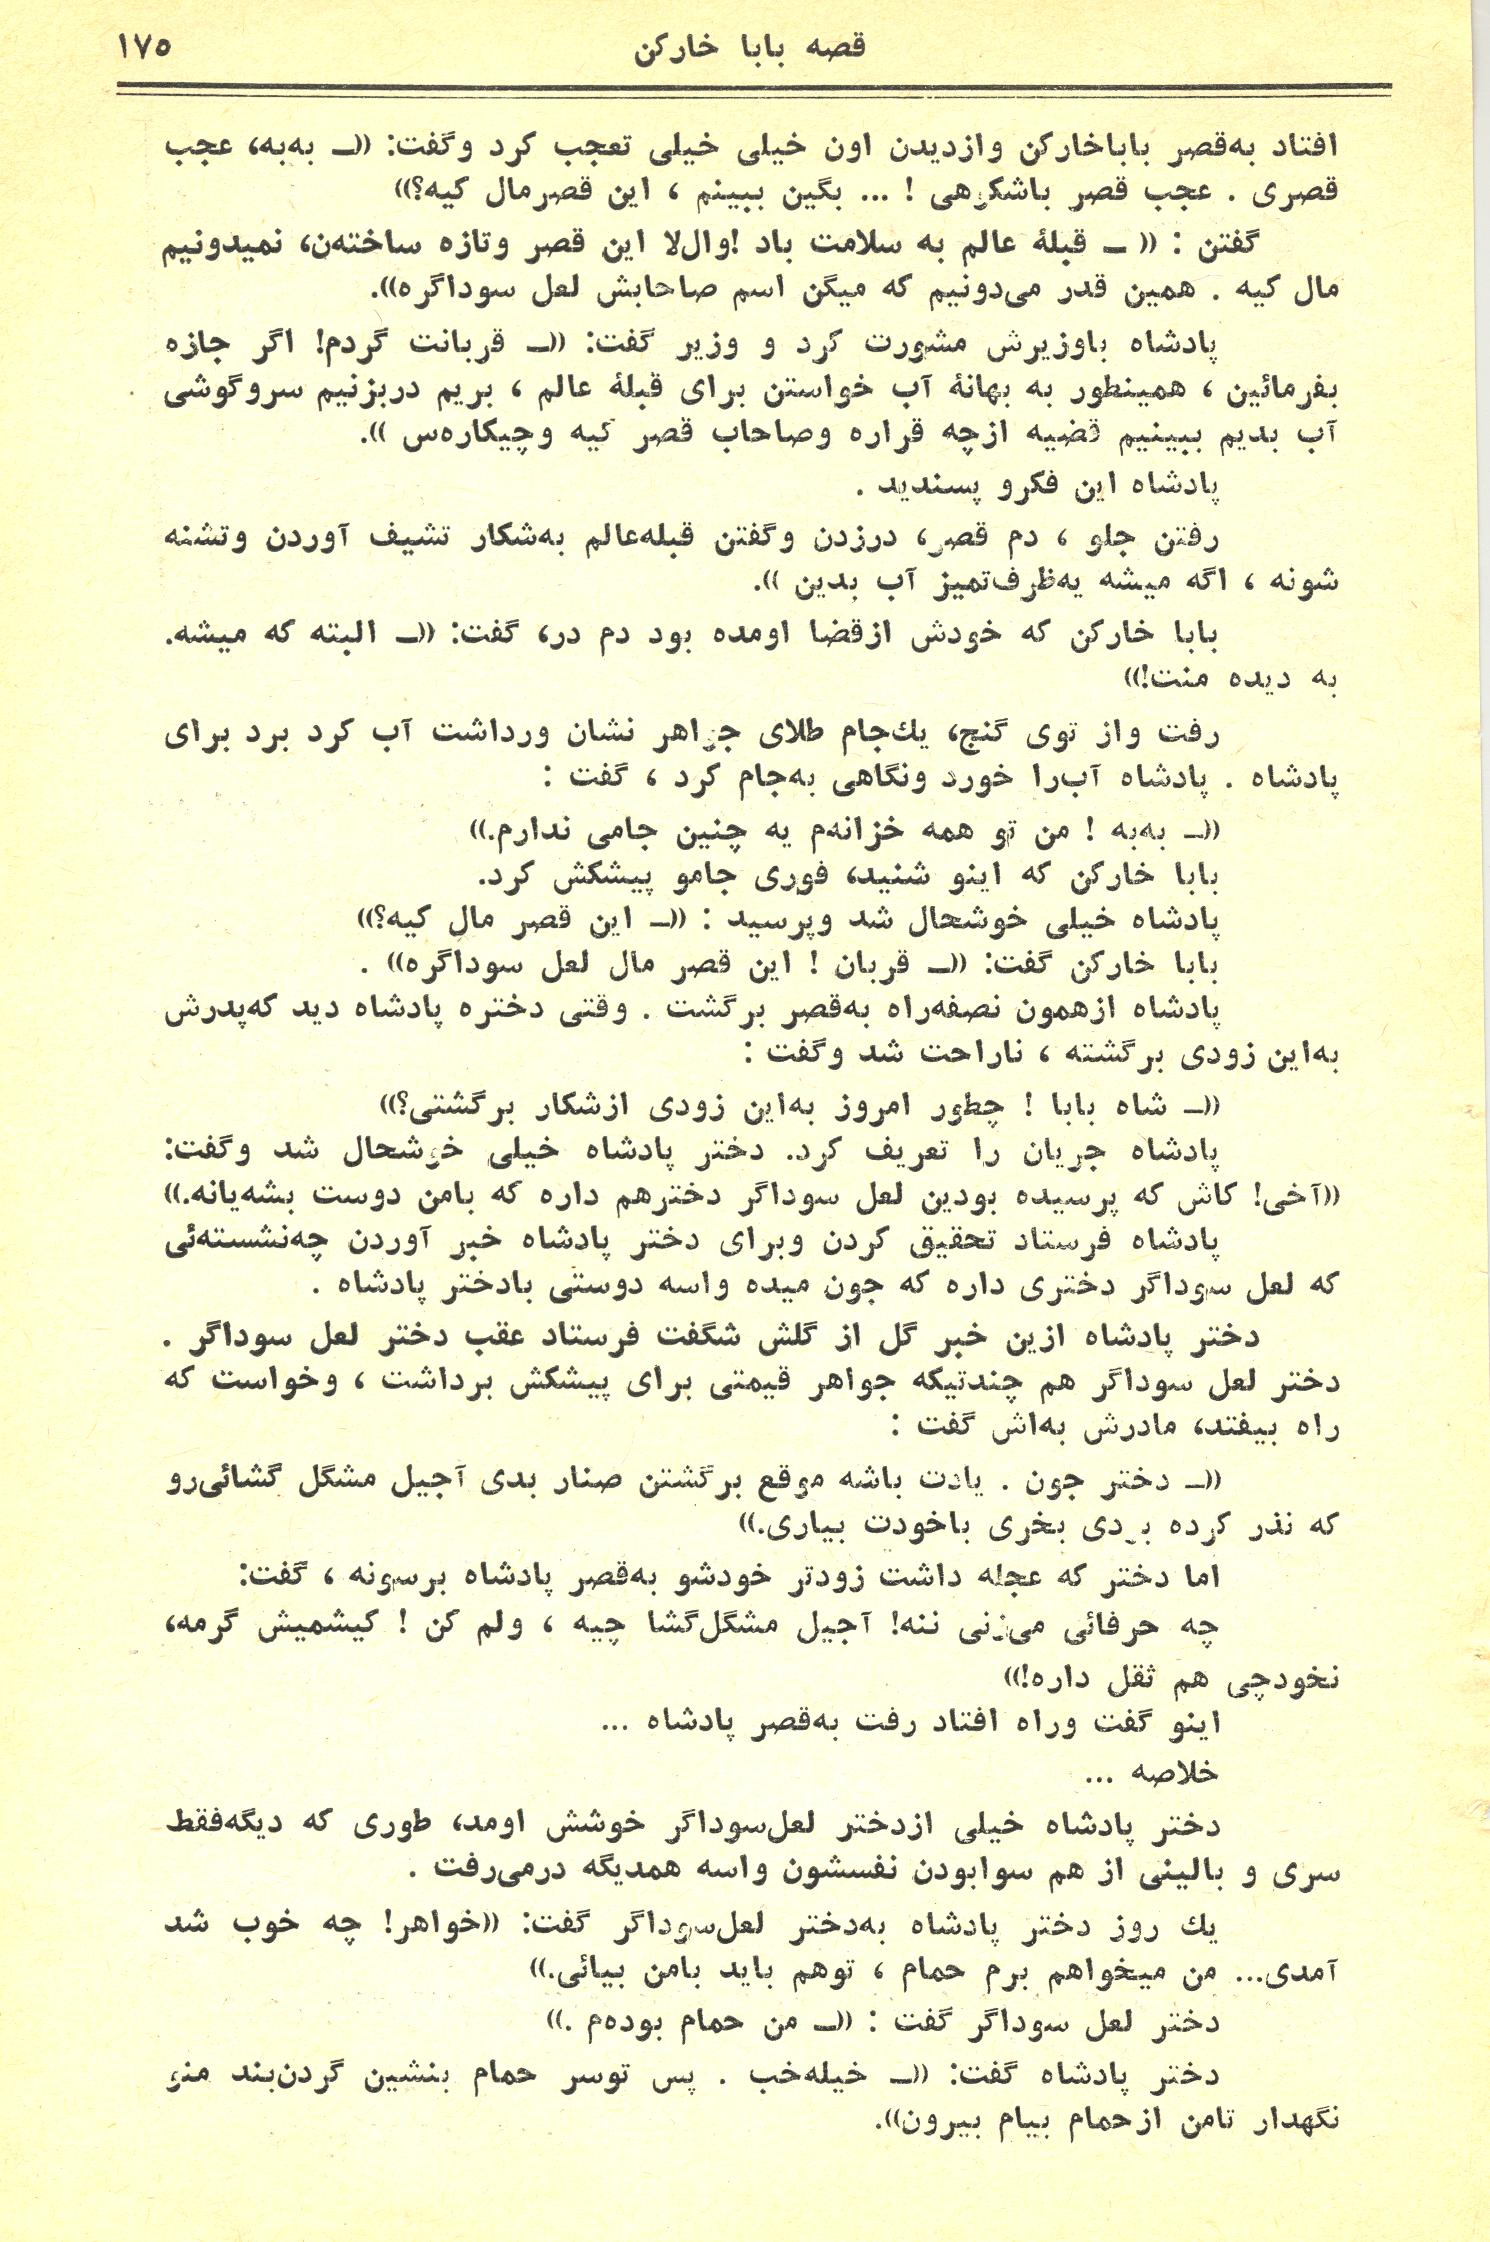 قصه بابا خارکن
۱۷۵
افتاد به‌قصر باباخارکن وازدیدن اون خیلی خیلی تعجب کرد وگفت: ((ــ به‌به، عجب
قصری . عجب قصر باشکوهی ! ... بگین ببینم ، این قصرمال کیه؟))
گفتن : (( ــ قبلهٔ عالم به سلامت باد !وال‌لا این قصر وتازه ساخته‌ن، نمیدونیم
مال کیه . همین قدر می‌دونیم که میگن اسم صاحابش لعل سوداگره)).
پادشاه باوزیرش مشورت کرد و وزیر گفت: ((ــ قربانت گردم! اگر جازه
بفرمائین ، همینطور به بهانهٔ آب خواستن برای قبلهٔ عالم ، بریم دربزنیم سروگوشی
آب بدیم ببینیم قضیه ازچه قراره وصاحاب قصر کیه وچیکاره‌س )).
پادشاه این فکرو پسندید .
رفتن جلو ، دم قصر، درزدن وگفتن قبله‌عالم به‌شکار تشیف آوردن وتشنه
شونه ، اگه میشه یه‌ظرف‌تمیز آب بدین )).
بابا خارکن که خودش ازقضا اومده بود دم در، گفت: ((ــ البته که میشه.
به دیده منت!))
رفت واز توی گنج، یك‌جام طلای جواهر نشان ورداشت آب کرد برد برای
پادشاه . پادشاه آب‌را خورد ونگاهی به‌جام کرد ، گفت :
((ــ به‌به ! من تو همه خزانه‌م یه چنین جامی ندارم.))
بابا خارکن که اینو شنید، فوری جامو پیشکش کرد.
پادشاه خیلی خوشحال شد وپرسید : ((ــ این قصر مال کیه؟))
بابا خارکن گفت: ((ــ قربان ! این قصر مال لعل سوداگره)) .
پادشاه ازهمون نصفه‌راه به‌قصر برگشت . وقتی دختره پادشاه دید که‌پدرش
به‌این زودی برگشته ، ناراحت شد وگفت :
((ــ شاه بابا ! چطور امروز به‌این زودی ازشکار برگشتی؟))
پادشاه جریان را تعریف کرد. دختر پادشاه خیلی خوشحال شد وگفت:
((آخی! کاش که پرسیده بودین لعل سوداگر دخترهم داره که بامن دوست بشه‌یانه.))
پادشاه فرستاد تحقیق کردن وبرای دختر پادشاه خبر آوردن چه‌نشسته‌ئی
که لعل سوداگر دختری داره که جون میده واسه دوستی بادختر پادشاه .
دختر پادشاه ازین خبر گل از گلش شگفت فرستاد عقب دختر لعل سوداگر .
دختر لعل سوداگر هم چندتیکه جواهر قیمتی برای پیشکش برداشت ، وخواست که
راه بیفتد، مادرش به‌اش گفت :
((ــ دختر جون . یادت باشه موقع برگشتن صنار بدی آجیل مشگل گشائی‌رو
که نذر کرده بودی بخری باخودت بیاری.))
اما دختر که عجله داشت زودتر خودشو به‌قصر پادشاه برسونه ، گفت:
چه حرفائی می‌زنی ننه! آجیل مشگل‌گشا چیه ، ولم کن ! کیشمیش گرمه،
نخودچی هم ثقل داره!))
اینو گفت وراه افتاد رفت به‌قصر پادشاه ...
خلاصه ...
دختر پادشاه خیلی ازدختر لعل‌سوداگر خوشش اومد، طوری که دیگه‌فقط
سری و بالینی از هم سوابودن نفسشون واسه همدیگه درمی‌رفت .
یك روز دختر پادشاه به‌دختر لعل‌سوداگر گفت: ((خواهر! چه خوب شد
آمدی... من میخواهم برم حمام ، توهم باید بامن بیائی.))
دختر لعل سوداگر گفت : ((ــ من حمام بوده‌م .))
دختر پادشاه گفت: ((ــ خیله‌خب . پس توسر حمام بنشین گردن‌بند منو
نگهدار تامن ازحمام بیام بیرون)).